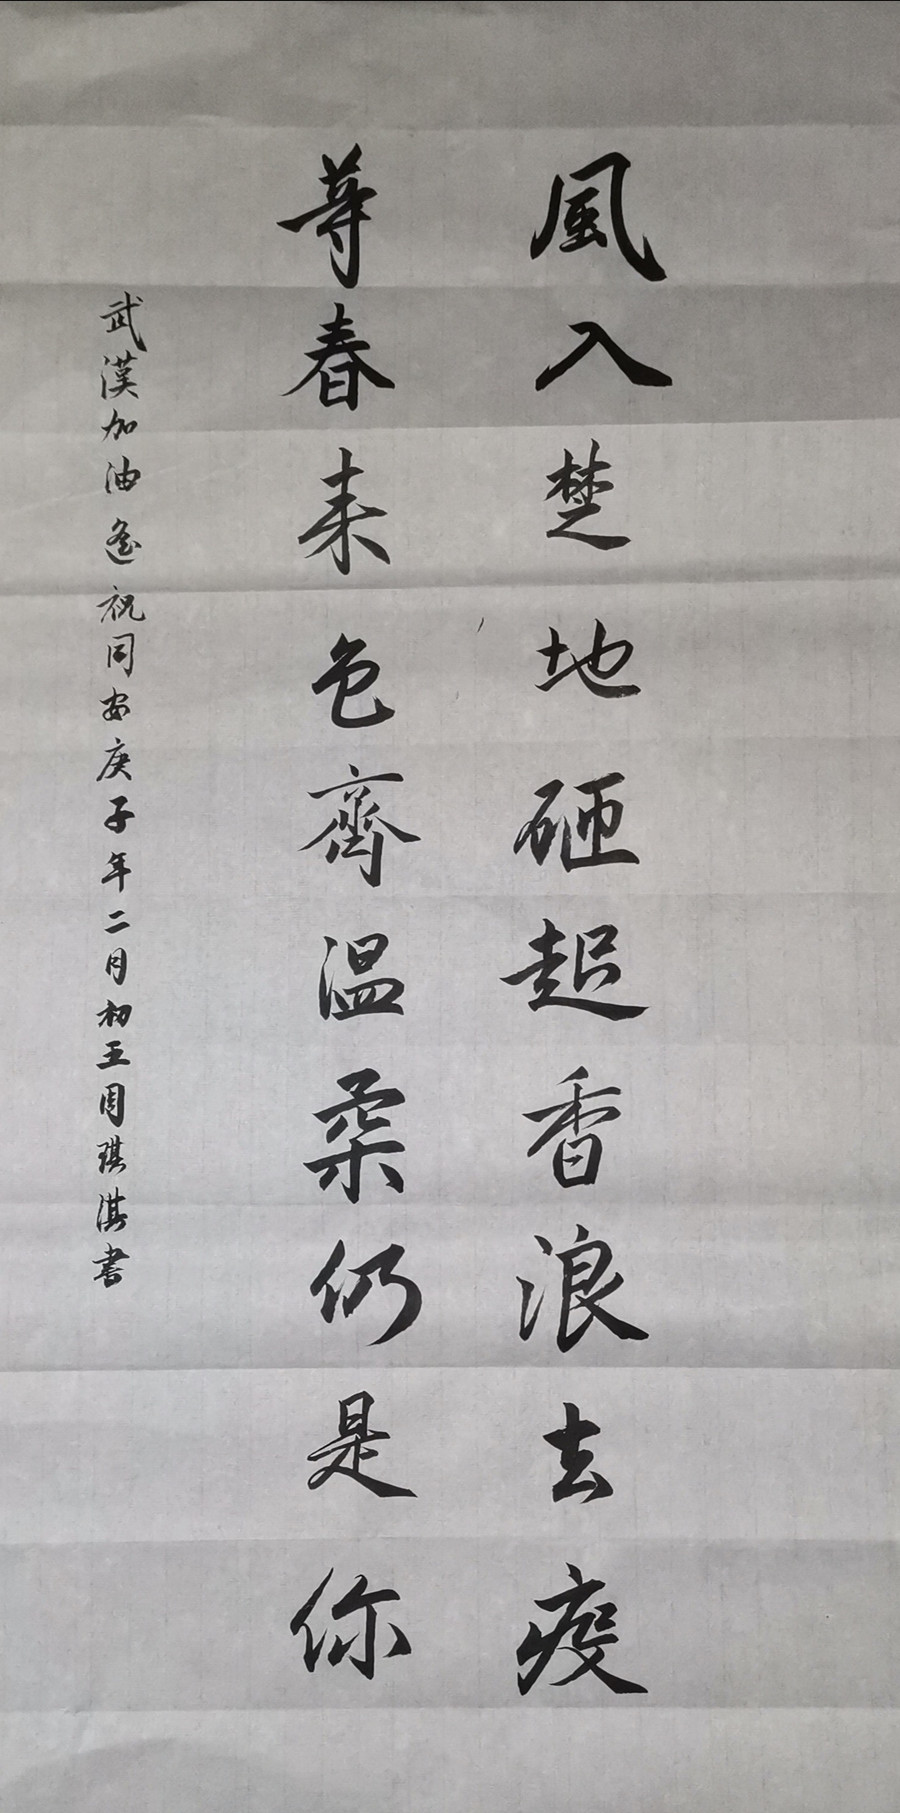 風入楚地砸起香浪去疫
尊春来色齊温柔仍是你
武漢加油遙祝同安庚子年二月初五周琪淇書